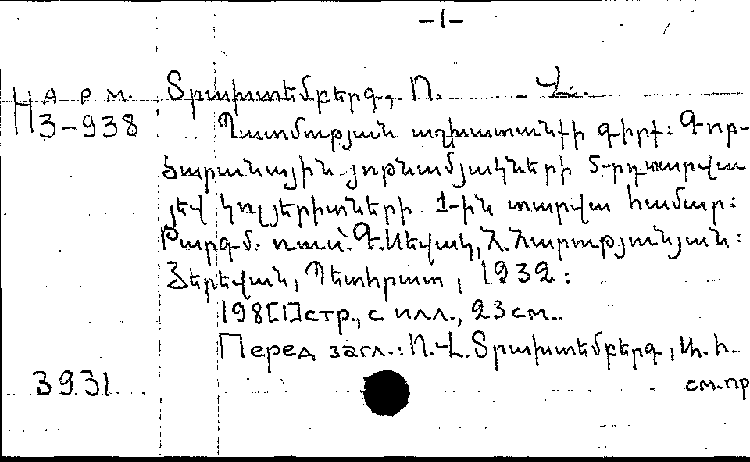 -1-
Арм. Տրախտեմբերգ, Ո. Վ.
Н 3-938 Պատմության աշխատանքի գիրք: Գոր-
ծարանային յոթնամյակների 5-րդ տարվա
յեվ կոլյերիտների 1-ին տարվա համար:
Թարգմ. ռուս. Գ. Սեվակ, Հ. Հարությունյան:
Յերեվան, Պետհրատ, 1932:
198[1] стр., с илл., 23 см.
Перед загл.: Ո. Վ. Տրախտեմբերգ,
3931 см. пр